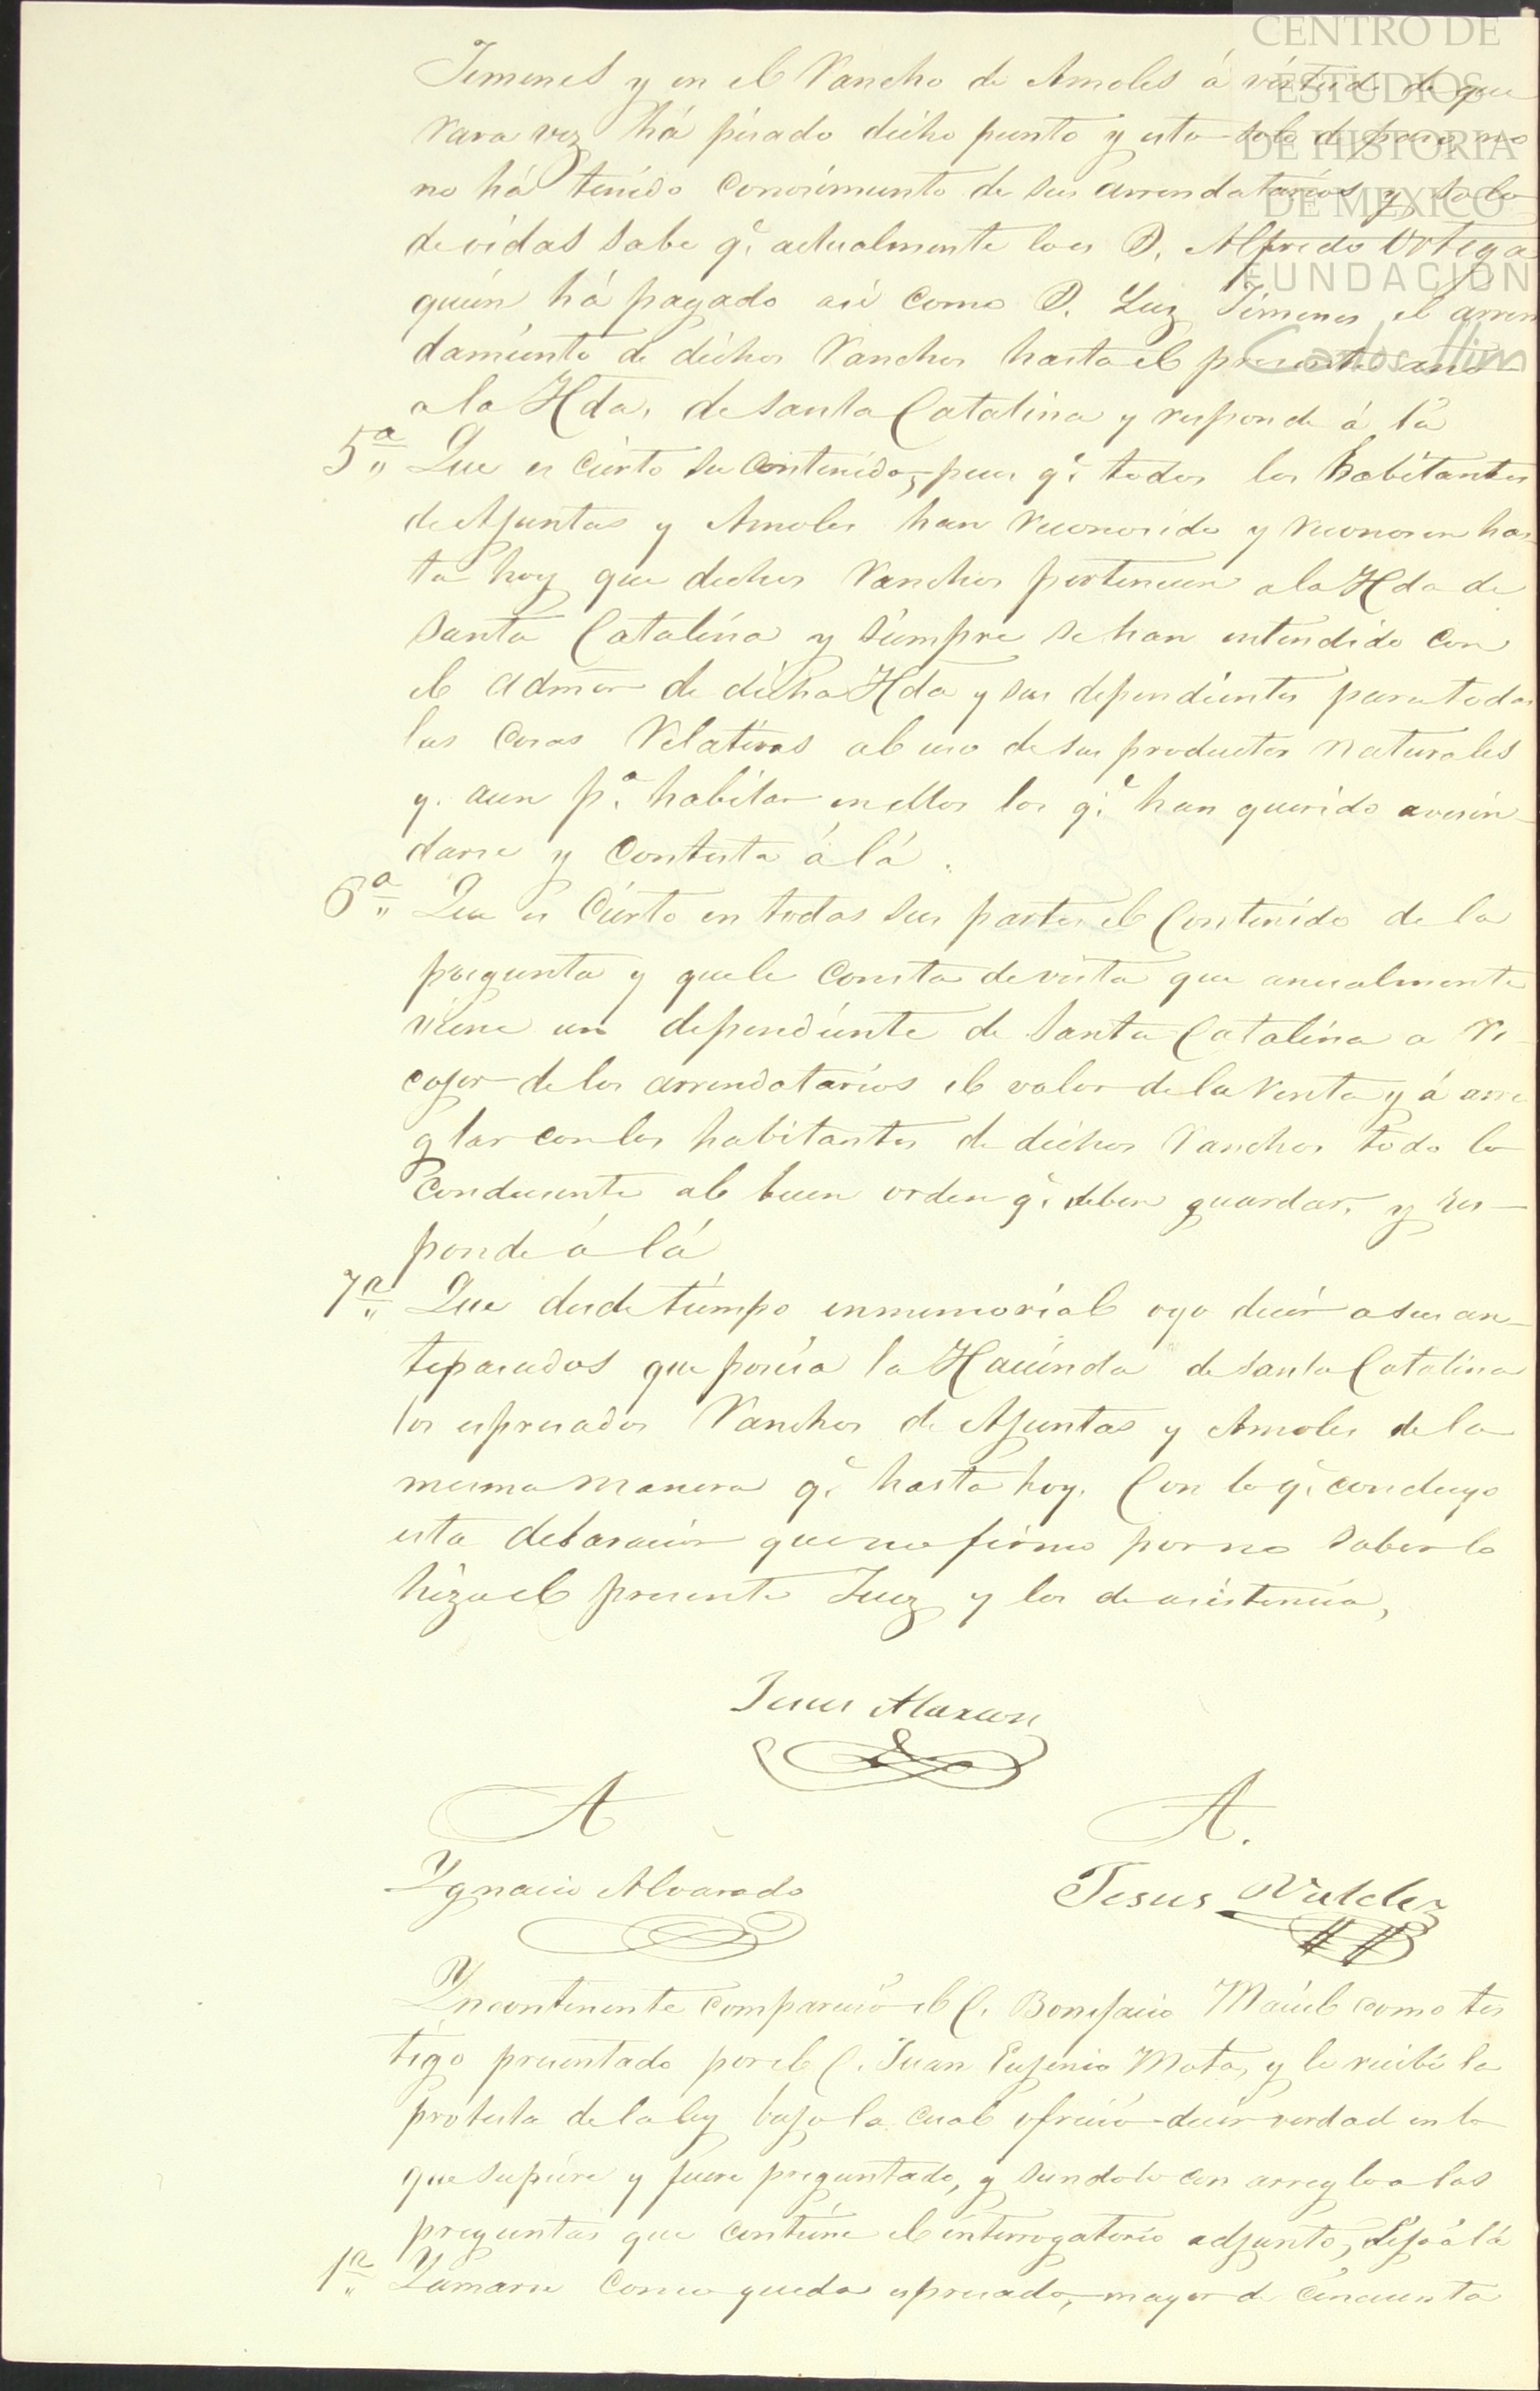 CENTRO DE
ESTUDIOS
DE HISTORIA
DE MEXICO
FUNDACION
Carlos Slim
Jimenes y en el Rancho de Amoles á virtud de que
rara vez há pisado dicho punto y esto solo de paso, no
no há tenido conosimiento de sus arrendatarios y solo
de oidas sabe q.e actualmente lo es D. Alfredo Ortega
quién há pagado asi como D. Luz Jimenes el arren
damiento de dichos Ranchos hasta el presente año
a la Hda. de Santa Catalina y responde á la
5.a Que es cierto su contenido, pues q.e todos los habitantes
de Ajuntas y Amoles han reconosido y reconosen has
ta hoy que dichos Ranchos pertenecen a la Hda de
Santa Catalina y siempre se han entendido con
el Admor de dicha Hda y sus dependientes para todas
las cosas relativas al uso de sus productos naturales
y aun p.a habitar en ellos los q.e han querido avesin
darse y contesta á lá.
6.a Que es cierto en todas sus partes el contenido de la
pregunta y que le consta de vista que anualmente
viene un dependiente de Santa Catalina a re
cojer de los arrendatarios el valor de la renta y á arre
glar con los habitantes de dichos Ranchos todo lo
conducente al buen orden q.e deben guardar, y res
ponde á lá
7.a Que desde tiempo inmemorial oyo decir a sus an
tepasados que poseia la Hacienda de Santa Catalina
los espresados Ranchos de Ajuntas y Amoles de la
misma manera q.e hasta hoy. Con lo q.e concluyo
esta declaracion que no firmo por no saber lo
hizo el presente Juez y los de asistencia,
Jesus Alarcon
A
A.
Ygnacio Alvarado
Jesus Valdez
Yncontinente comparecio el C. Bonifacio Maciel como tes
tigo presentado por el C. Juan Eujenio Mota, y le recibi la
protesta de la ley bajo la cual ofreció decir verdad en lo
que supiere y fuere preguntado, y siendolo con arreglo a las
preguntas que contiene el interrogatorio adjunto, dijo á lá
1.a Llamarse como queda espresado, mayor de cincuenta